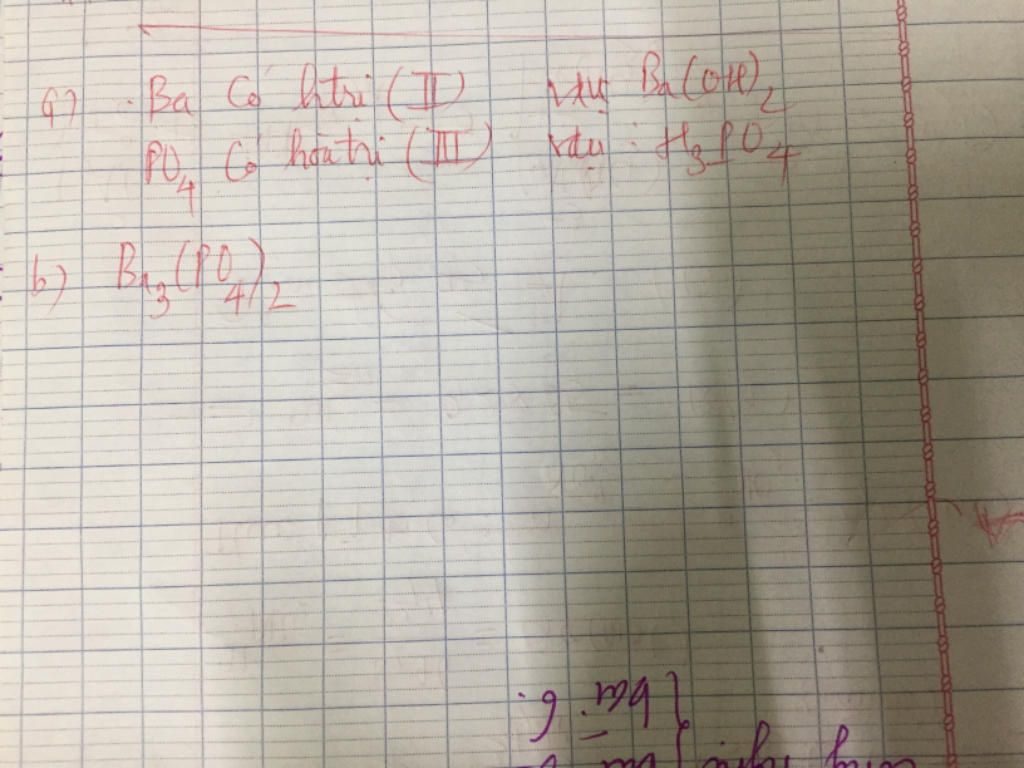 a) Ba Có htrị (II) vdụ Ba(OH)₂
PO₄ Có hóa trị (III) vdụ : H₃PO₄
b) Ba₃(PO₄)₂
bài 6.